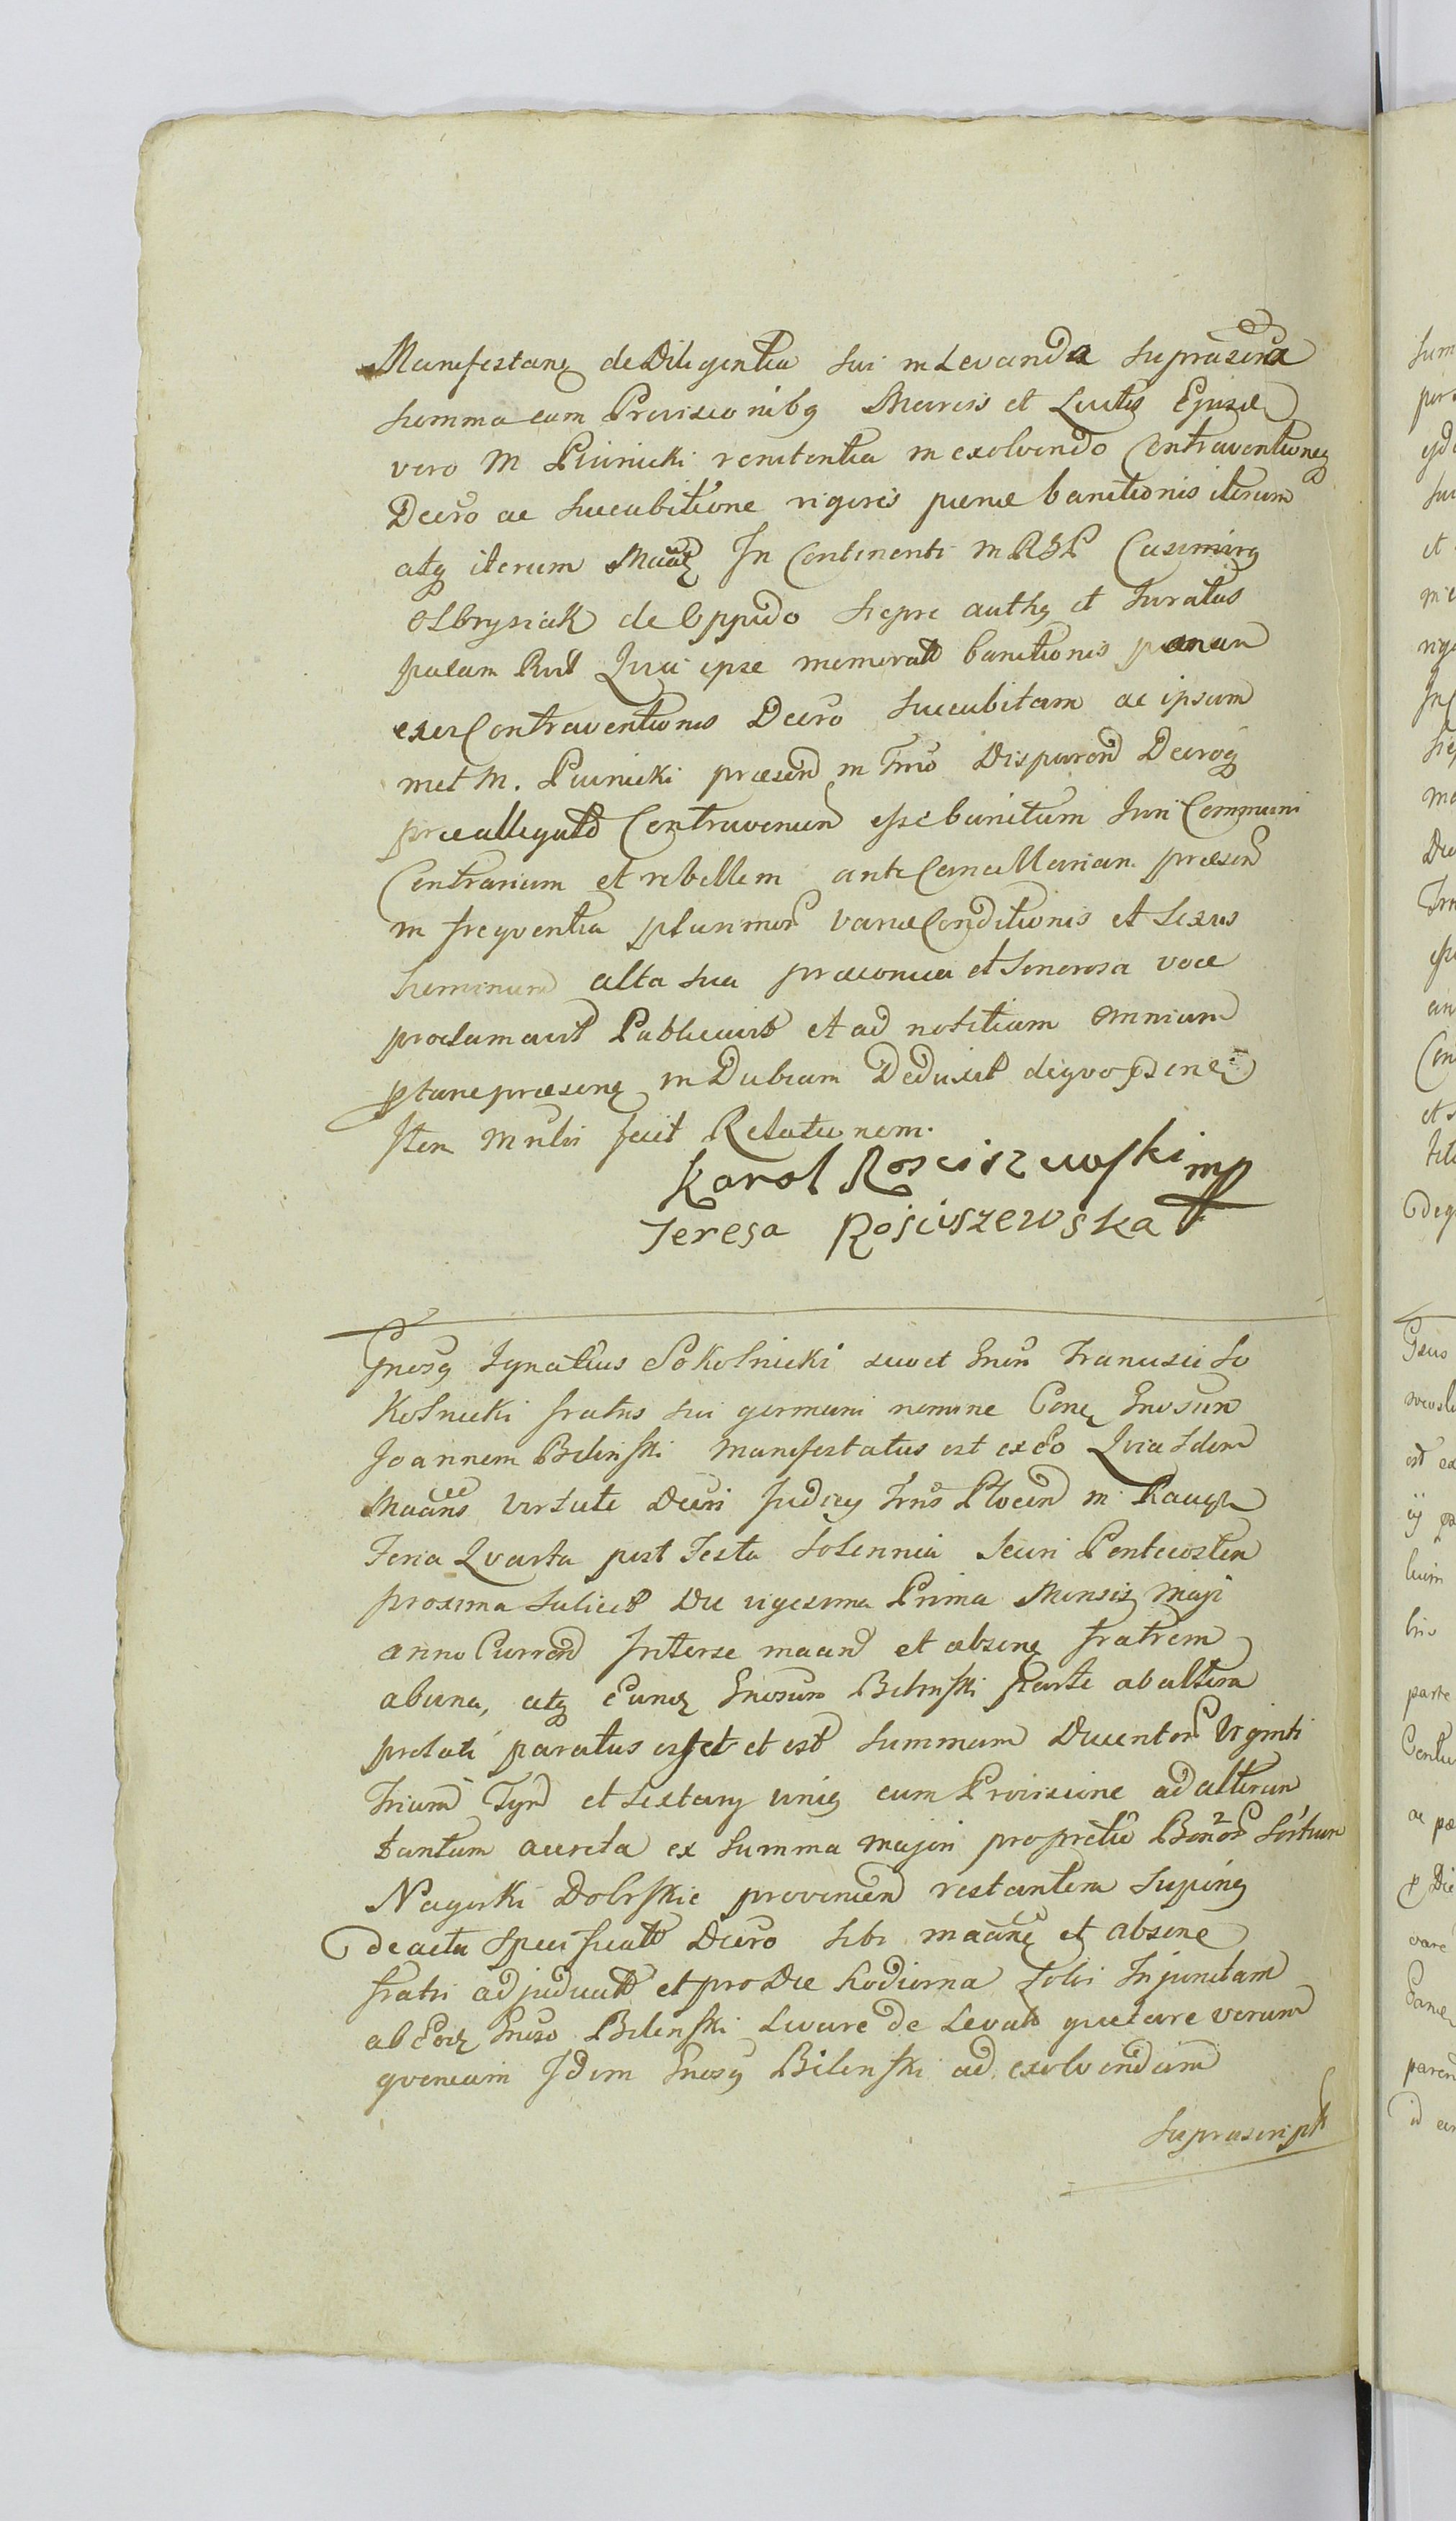 Manifestanq de Diligentia sui in Levanda suprascripta
summa cum Provisionibq Marcis et Luitis Ejusd
vero M Piwnicki renitentia in exolvendo Contraventioneq
Decro ac succubitione rigoris pænæ banitionis iterum
atq iterum In Continenti m RGP Casimirq
Olbrysiak de Oppido Siepre authq et Juratus
palam Rvit Quia ipse memorato banitionis pænam
ex Contraventionis Decro succubitam ac ipsum
met M. Piwnicki præsen in Trno Disparen Decroq
præallegato Contravenien esse banitum Juri Communi
Contrarium et rebellem ante Cancellariam præsen
in freqventia plurimor variæ Conditionis et sexus
hominum alta sua præconica et sonorosa voce
proclamavit Publicavit et ad notitiam omnium
ptunc præsenq in Dubiam Deduxit deqvo
Item mnlri fecit Relationem.
Karol Rosciszewski mp
Teresa Rościszewska
Gnosq Ignatius Sokolnicki suo et Gnsi Francisci So
kolnicki fratris sui germani nomine Conq Gnosum
Joannem Bilinski manifestatus est ex eo Qvia Idem
Maans virtute Decri Judicy Trris Plocen in Raciąż
Feria Qvarta post Festa Solennia Sacri Pentecosten
proxima scilicet Die vigesima Prima Mensis Maji
anno Curren Inter se maan et absenq fratrem
ab una, atq Eunq Gnosum Bilinski Parte ab altera
prolati paratus esset et est summam Ducentor Viginti
Trium Tynf et sextary uniq cum Provisione ad alterum
tantum accreta ex summa majori pro pretio Bonor Sortium
Nagorki Dobrskie provenien restantem
de actu specificato Decro sibi maanq et absenq
fratri adjudicato et pro Die hodierna solvi Injunctam
ab Eodq Gnoso Bilinski Levare de Levato quietare verum
qvoniam Idem Gnosq Bilinski ad exolvendam
suprascript